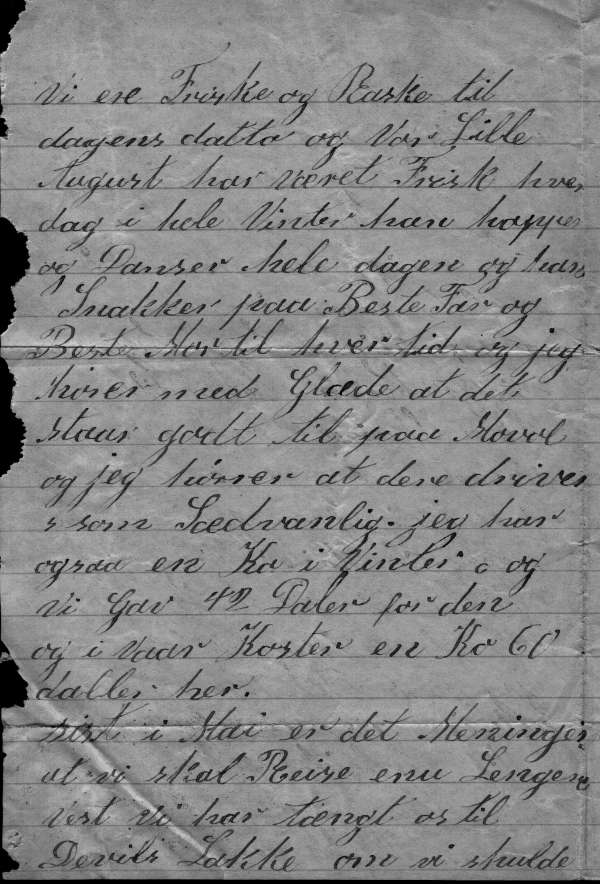 Vi ere Friske og Raske til
dagens datto og Vor Lille
August har været Frisk hver
dag i hele Vinter han hopper
og Danser hele dagen og han
Snakker paa Beste Far og
Beste Mor til hver tid og jeg
hører med Glæde at det
staar godt til paa
og jeg hører at dere driver
s som Sædvanlig. jeg har
ogsaa en Ko i Vinter og
Vi Gav 42 Daler for den
og i Vaar Koster en Ko 60
daller her.
sist i Mai er det Meningen
at vi skal Reise enu Lengere
Vest Vi har tængt os til
Devils Lakke om vi skulde